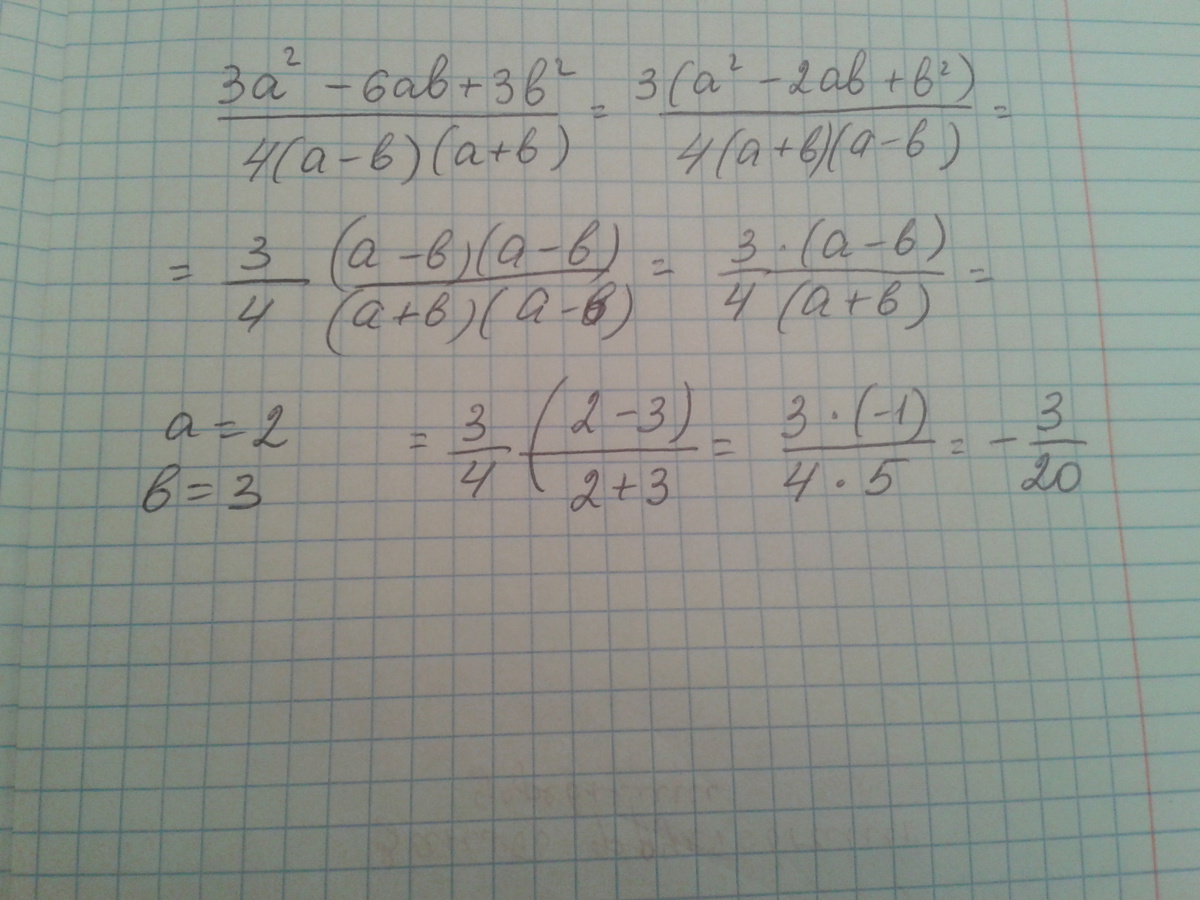 (3a² − 6ab + 3b²) / (4(a−b)(a+b)) = 3(a² − 2ab + b²) / (4(a+b)(a−b)) =
= 3/4 (a−b)(a−b) / ((a+b)(a−b)) = 3·(a−b) / (4(a+b)) =
a = 2
b = 3
= 3/4 ((2−3) / (2+3 = 3·(−1) / (4·5) = −3/20